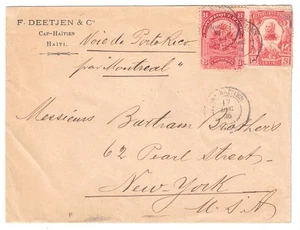 F. DEETJEN & Co
CAP-HAÏTIEN
HAITI.
Voie de Porto Rico
par "Montreal"
Messieurs Bartram Brothers
62 Pearl Street
New-York
U.S.A